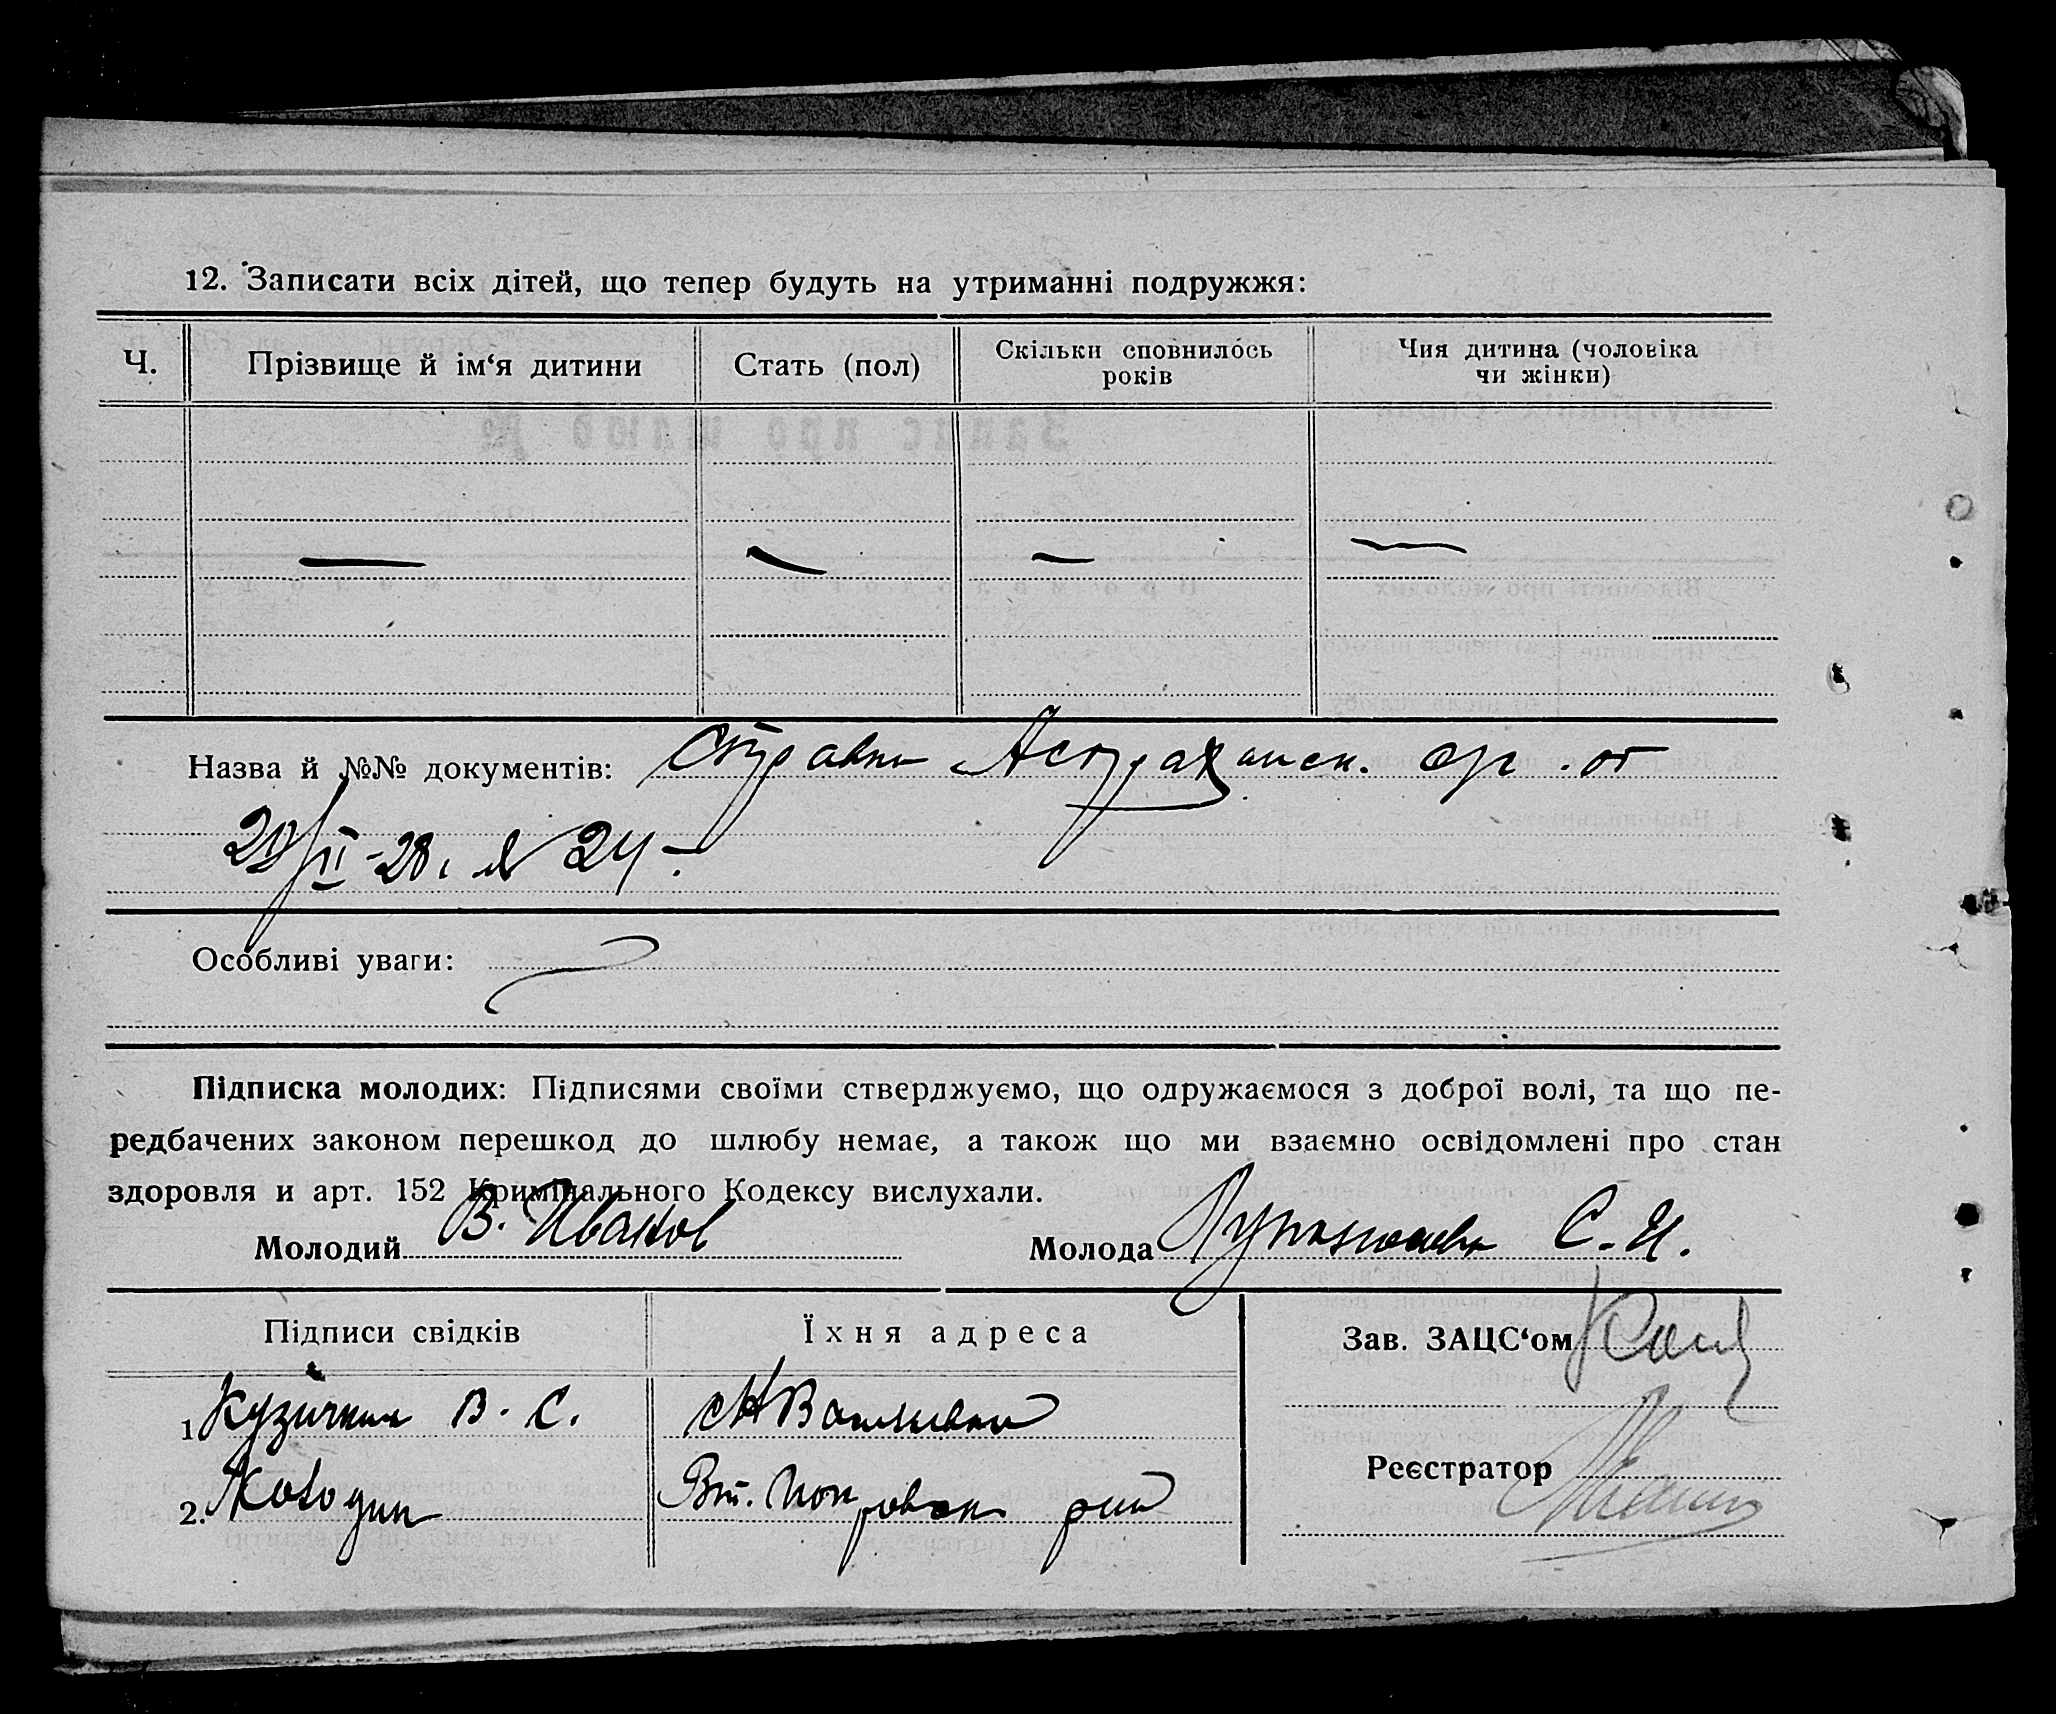 12. Записати всіх дітей, що тепер будуть на утриманні подружжя:
Ч. Прізвище й ім‘я дитини Стать (пол) Скільки сповнилось років Чия дитина (чоловіка чи жінки)
Назва й №№ документів: Справки Астраханск. с/с. от
29/II-28 г № 24.-
Особливі уваги:
Підписка молодих: Підписями своїми стверджуємо, що одружаємося з доброї волі, та що пе-
редбачених законом перешкод до шлюбу немає, а також що ми взаємно освідомлені про стан
здоровля и арт. 152 Кримінального Кодексу вислухали.
Молодий В. Иванов Молода С. И.
Підписи свідків Їхня адреса Зав. ЗАЦС‘ом
1. Кузичкин В. С.
Реєстратор
2.